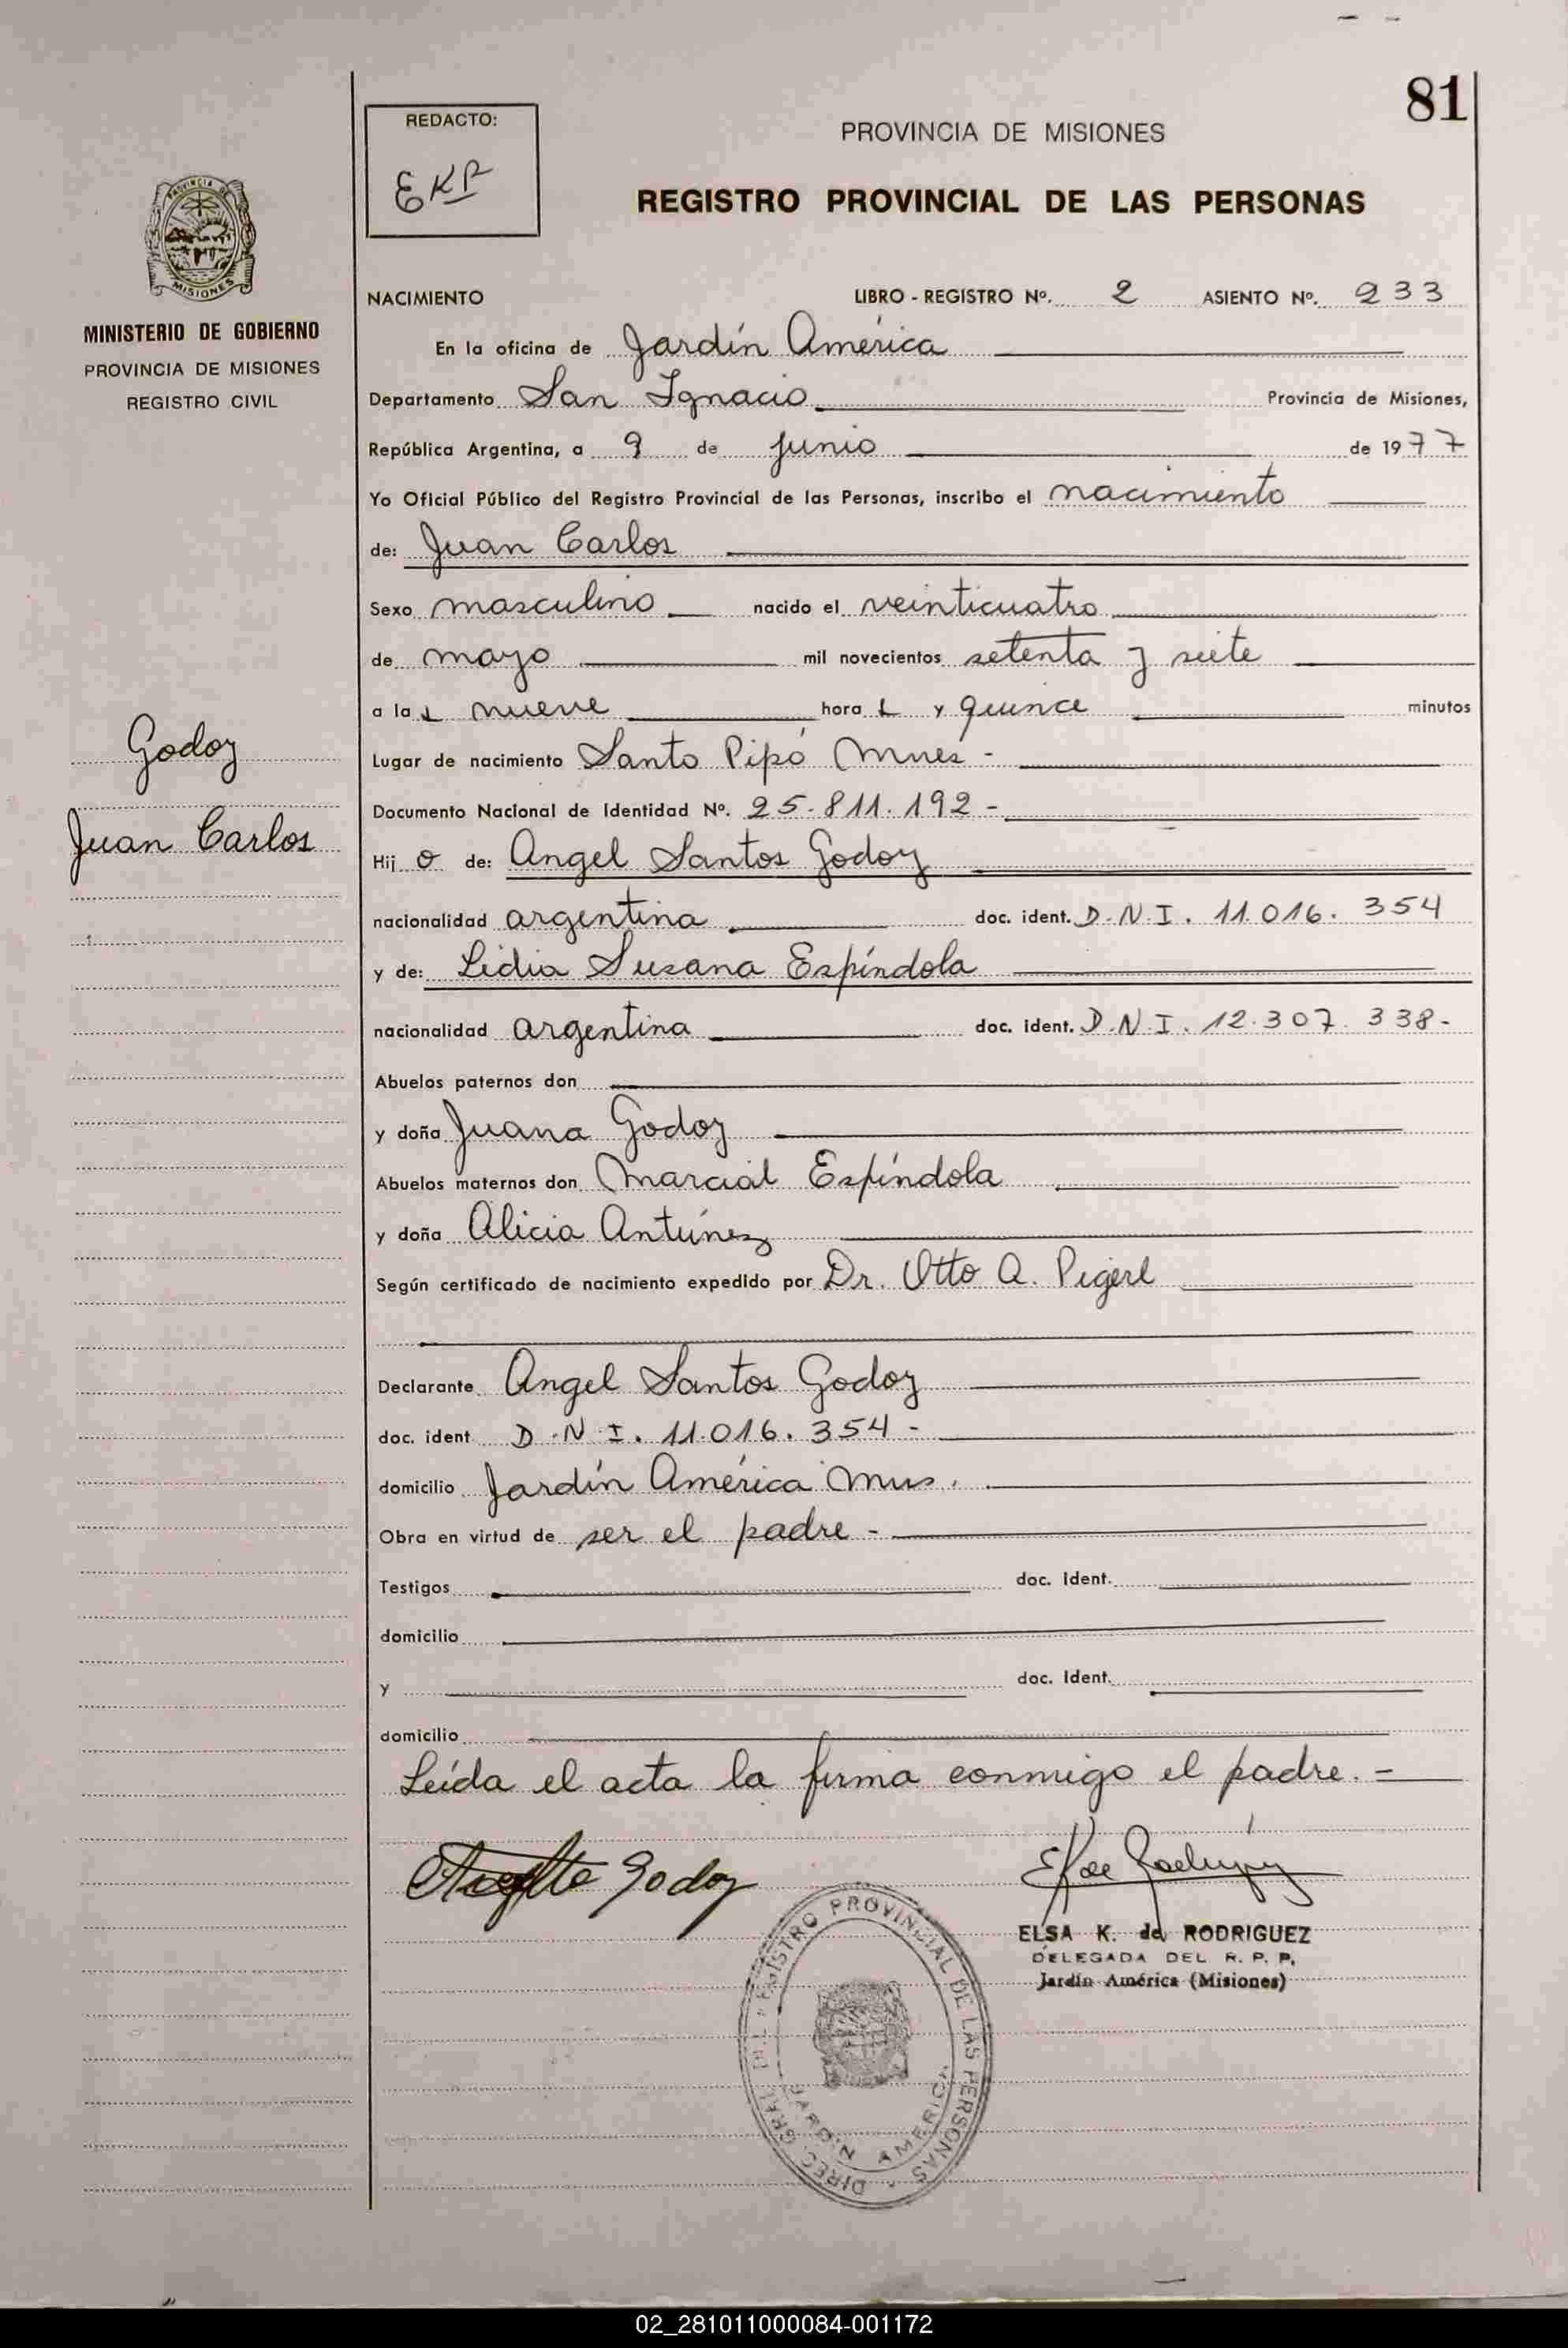 81
REDACTO:
EKR
PROVINCIA DE MISIONES
REGISTRO PROVINCIAL DE LAS PERSONAS
PROVINCIA DE
MISIONES
MINISTERIO DE GOBIERNO
PROVINCIA DE MISIONES
REGISTRO CIVIL
NACIMIENTO LIBRO - REGISTRO Nº. 2 ASIENTO Nº. 233
En la oficina de Jardín América
Departamento San Ignacio Provincia de Misiones,
República Argentina, a 9 de junio de 1977
Yo Oficial Público del Registro Provincial de las Personas, inscribo el nacimiento
de: Juan Carlos
Sexo masculino nacido el veinticuatro
de mayo mil novecientos setenta y siete
a las nueve horas y quince minutos
Godoy
Juan Carlos
Lugar de nacimiento Santo Pipó Mnes -
Documento Nacional de Identidad Nº. 25.811.192 -
Hijo de: Angel Santos Godoy
nacionalidad argentina doc. ident. D.N.I. 11.016.354
y de: Lidia Susana Espíndola
nacionalidad argentina doc. ident. D.N.I. 12.307.338-
Abuelos paternos don
y doña Juana Godoy
Abuelos maternos don Marcial Espíndola
y doña Alicia Antúnez
Según certificado de nacimiento expedido por Dr. Otto A. Pigerl
Declarante Angel Santos Godoy
doc. ident D.N.I. 11.016.354 -
domicilio Jardín América Mns.
Obra en virtud de ser el padre -
Testigos doc. ident.
domicilio
y doc. ident.
domicilio
Leída el acta la firma conmigo el padre. -
Godoy
E K de Rodríguez
ELSA K. de RODRIGUEZ
DELEGADA DEL R. P. P.
Jardín América (Misiones)
DIREC. GRAL. DEL REGISTRO PROVINCIAL DE LAS PERSONAS
JARDIN AMERICA
02_281011000084-001172